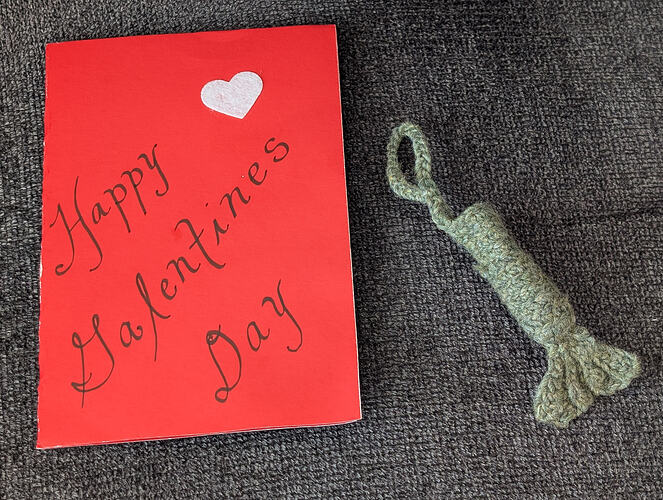 Happy
Galentines
Day